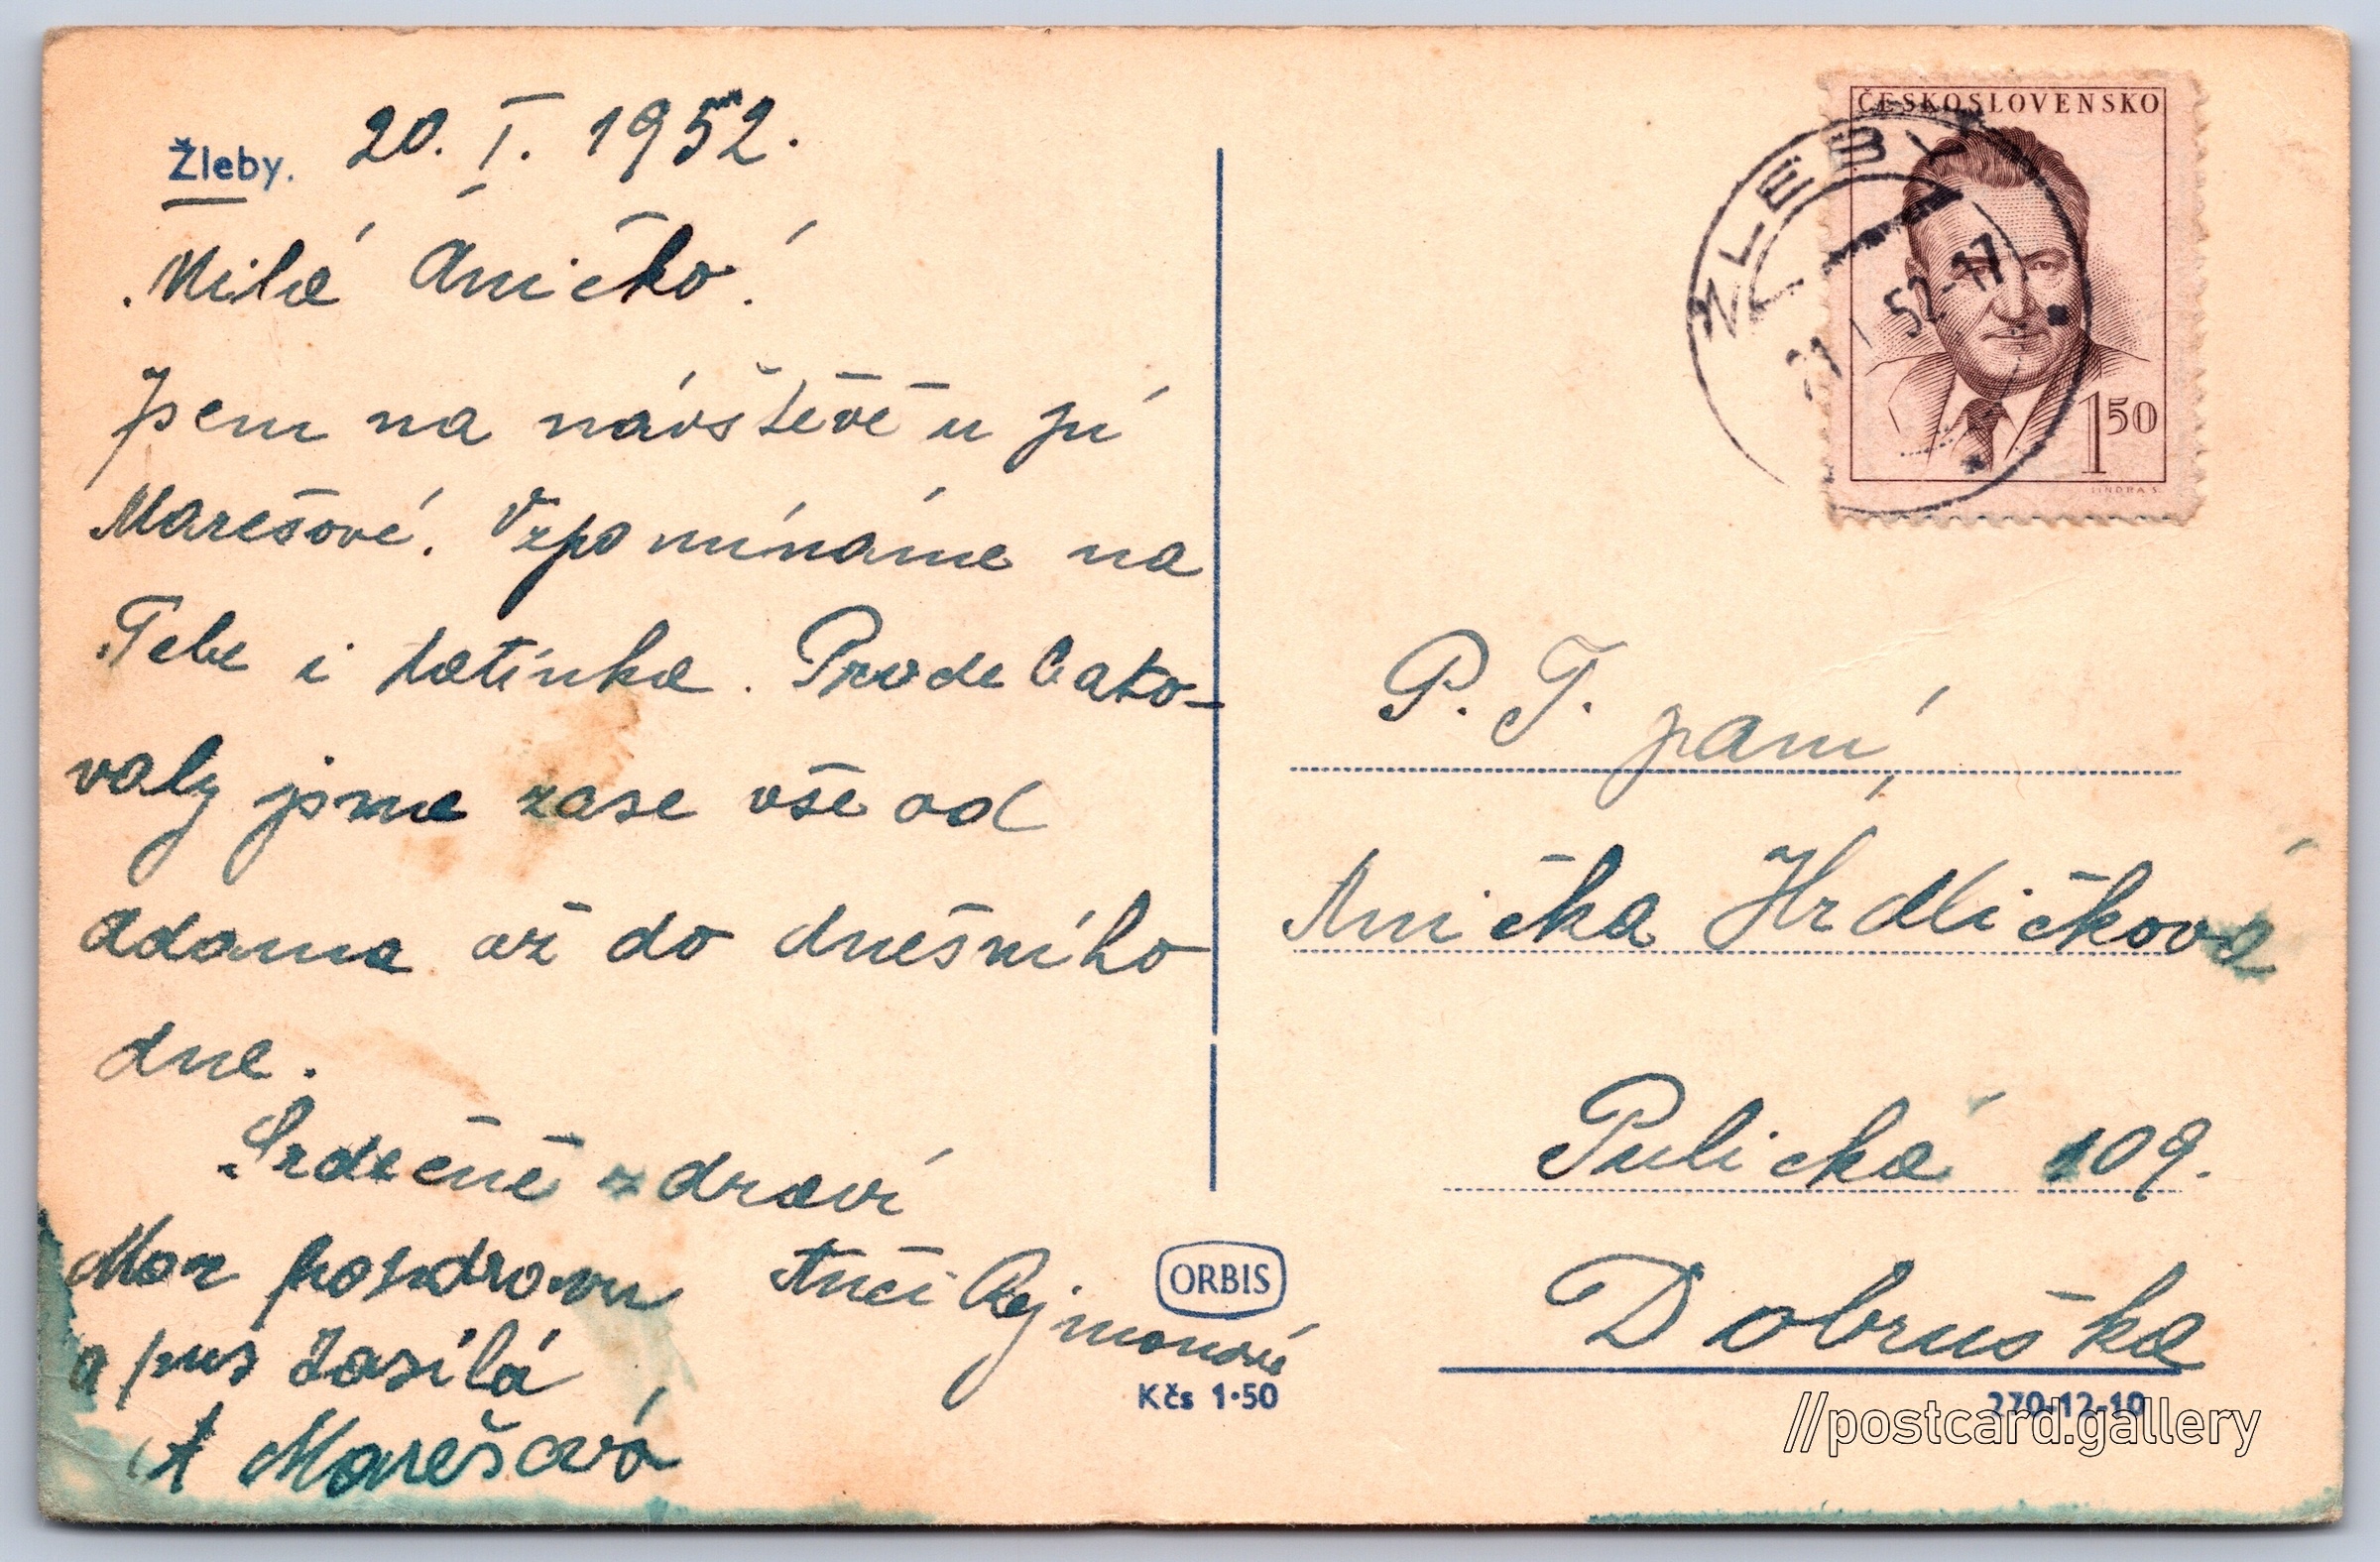 Žleby. 20. I. 1952.
Milá Aničko!
Jsem na návštěvě u pí
Marešové. Vzpomínáme na
Tebe i tatínka. Prodebato-
valy jsme zase vše od
adama až do dnešního
dne.
Srdečně zdraví
Anči Rejmonová
Moc pozdravu
a pus zasílá
A Marešová
ORBIS
Kčs 1·50
ČESKOSLOVENSKO
ŽLEBY
21 I 52-17
1 50
JINDRA S.
P. T. paní,
Anička Hrdličková
Pulická 109.
Dobruška
270-12-10
//postcard.gallery